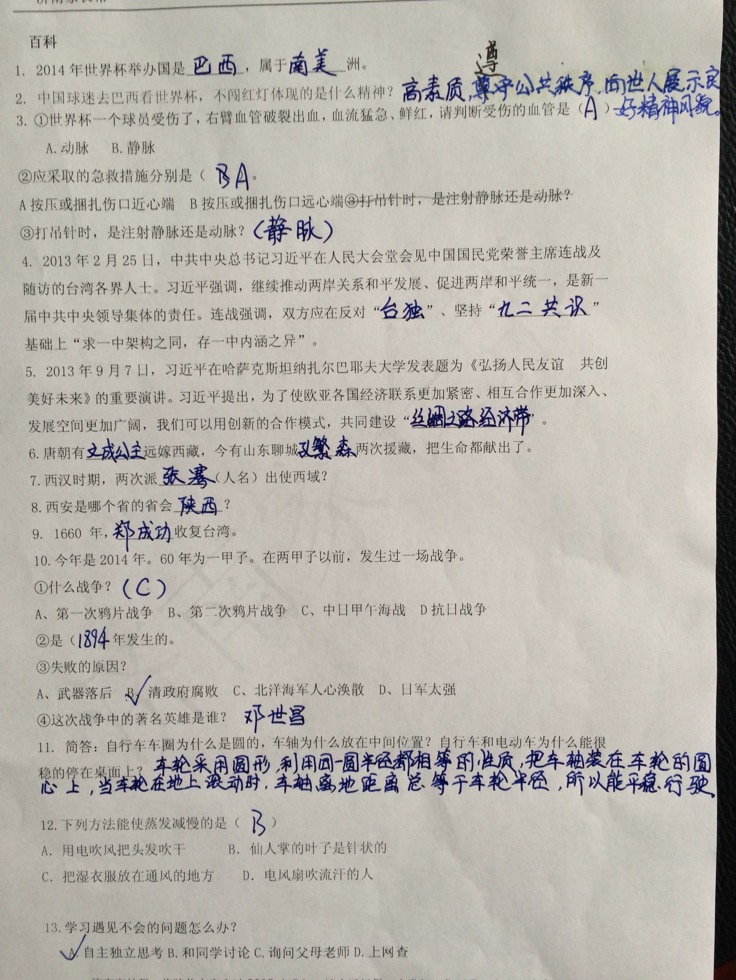 百科
1. 2014年世界杯举办国是 巴西 ,属于 南美 洲。
遵
2. 中国球迷去巴西看世界杯,不闯红灯体现的是什么精神? 高素质,尊守公共秩序,向世人展示良
3. ①世界杯一个球员受伤了,右臂血管破裂出血,血流猛急、鲜红,请判断受伤的血管是( A ) 好精神风貌。
A.动脉 B.静脉
②应采取的急救措施分别是( BA 。
A 按压或捆扎伤口近心端 B 按压或捆扎伤口远心端③打吊针时,是注射静脉还是动脉?
③打吊针时,是注射静脉还是动脉?(静脉)
4. 2013年2月25日,中共中央总书记习近平在人民大会堂会见中国国民党荣誉主席连战及
随访的台湾各界人士。习近平强调,继续推动两岸关系和平发展、促进两岸和平统一,是新一
届中共中央领导集体的责任。连战强调,双方应在反对“台独”、坚持“九二共识”
基础上“求一中架构之同,存一中内涵之异”。
5. 2013年9月7日,习近平在哈萨克斯坦纳扎尔巴耶夫大学发表题为《弘扬人民友谊 共创
美好未来》的重要演讲。习近平提出,为了使欧亚各国经济联系更加紧密、相互合作更加深入、
发展空间更加广阔,我们可以用创新的合作模式,共同建设“丝绸之路经济带”。
6.唐朝有文成公主远嫁西藏,今有山东聊城孔繁森两次援藏,把生命都献出了。
7.西汉时期,两次派 张骞(人名)出使西域?
8.西安是哪个省的省会 陕西 ?
9. 1660 年,郑成功收复台湾。
10.今年是2014年。60年为一甲子。在两甲子以前,发生过一场战争。
①什么战争?(C)
A、第一次鸦片战争 B、第二次鸦片战争 C、中日甲午海战 D抗日战争
②是(1894年发生的。
③失败的原因?
A、武器落后 B、清政府腐败 C、北洋海军人心涣散 D、日军太强
④这次战争中的著名英雄是谁? 邓世昌
11. 简答:自行车车圈为什么是圆的,车轴为什么放在中间位置?自行车和电动车为什么能很
稳的停在桌面上? 车轮采用圆形,利用同一圆半径都相等的性质,把车轴装在车轮的圆
心上,当车轮在地上滚动时,车轴离地距离总等于车轮半径,所以能平稳行驶.
12.下列方法能使蒸发减慢的是( B )
A. 用电吹风把头发吹干 B. 仙人掌的叶子是针状的
C. 把湿衣服放在通风的地方 D. 电风扇吹流汗的人
13.学习遇见不会的问题怎么办?
A.自主独立思考 B.和同学讨论 C.询问父母老师 D.上网查